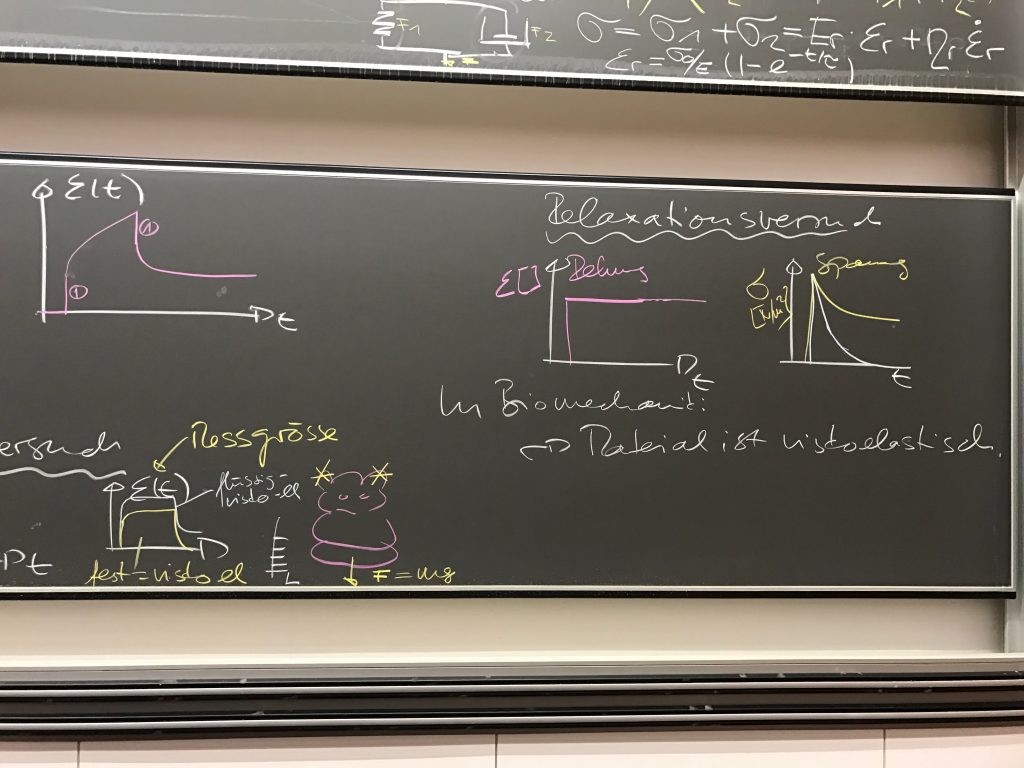 F1
F2
σ = σ1 + σ2 = Er · εr + ηr ε̇r
εr = σ0/E (1 - e^-t/τ)
ε(t)
1
1
t
Relaxationsversuch
ε[] Dehnung
t
σ [N/m²] Spannung
t
In Biomechanik:
→ Material ist viskoelastisch.
ersuch
Messgrösse
ε(t)
flüssig-
visko-el
t
fest-visko el
F = mg